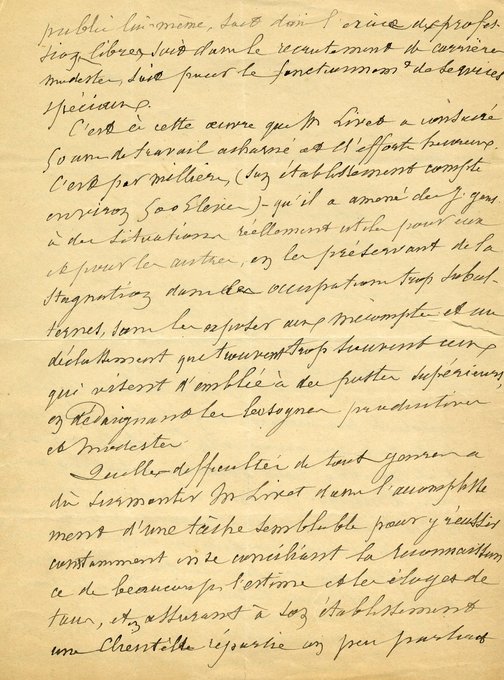 public lui-même, soit dans l'exercice des profes
sions libres, soit dans le recrutement de carrières
modestes, soit pour le fonctionnemt de services
spéciaux.
C'est à cette œuvre que M Livet a consacré
50 ans de travail acharné et d'efforts heureux.
C'est par milliers, (son établissement compte
environ 500 Elèves) - qu'il a amené des j. gens
à des situations réellement utiles pour eux
et pour les autres, en les préservant de la
stagnation dans les occupations trop subal-
ternes, sans les exposer aux mécomptes et au
déclassement que trouvent trop souvent ceux
qui visent d'emblée à des postes supérieurs,
en dédaignant les besognes productives
et modestes.
Quelles difficultés de tout genre a
dû surmonter M Livet dans l'accomplisse
ment d'une tâche semblable pour y réussir
constamment en se conciliant la reconnaissan
ce de beaucoup, l'estime et les éloges de
tous, et en assurant à son établissement
une Clientèle répartie un peu partout